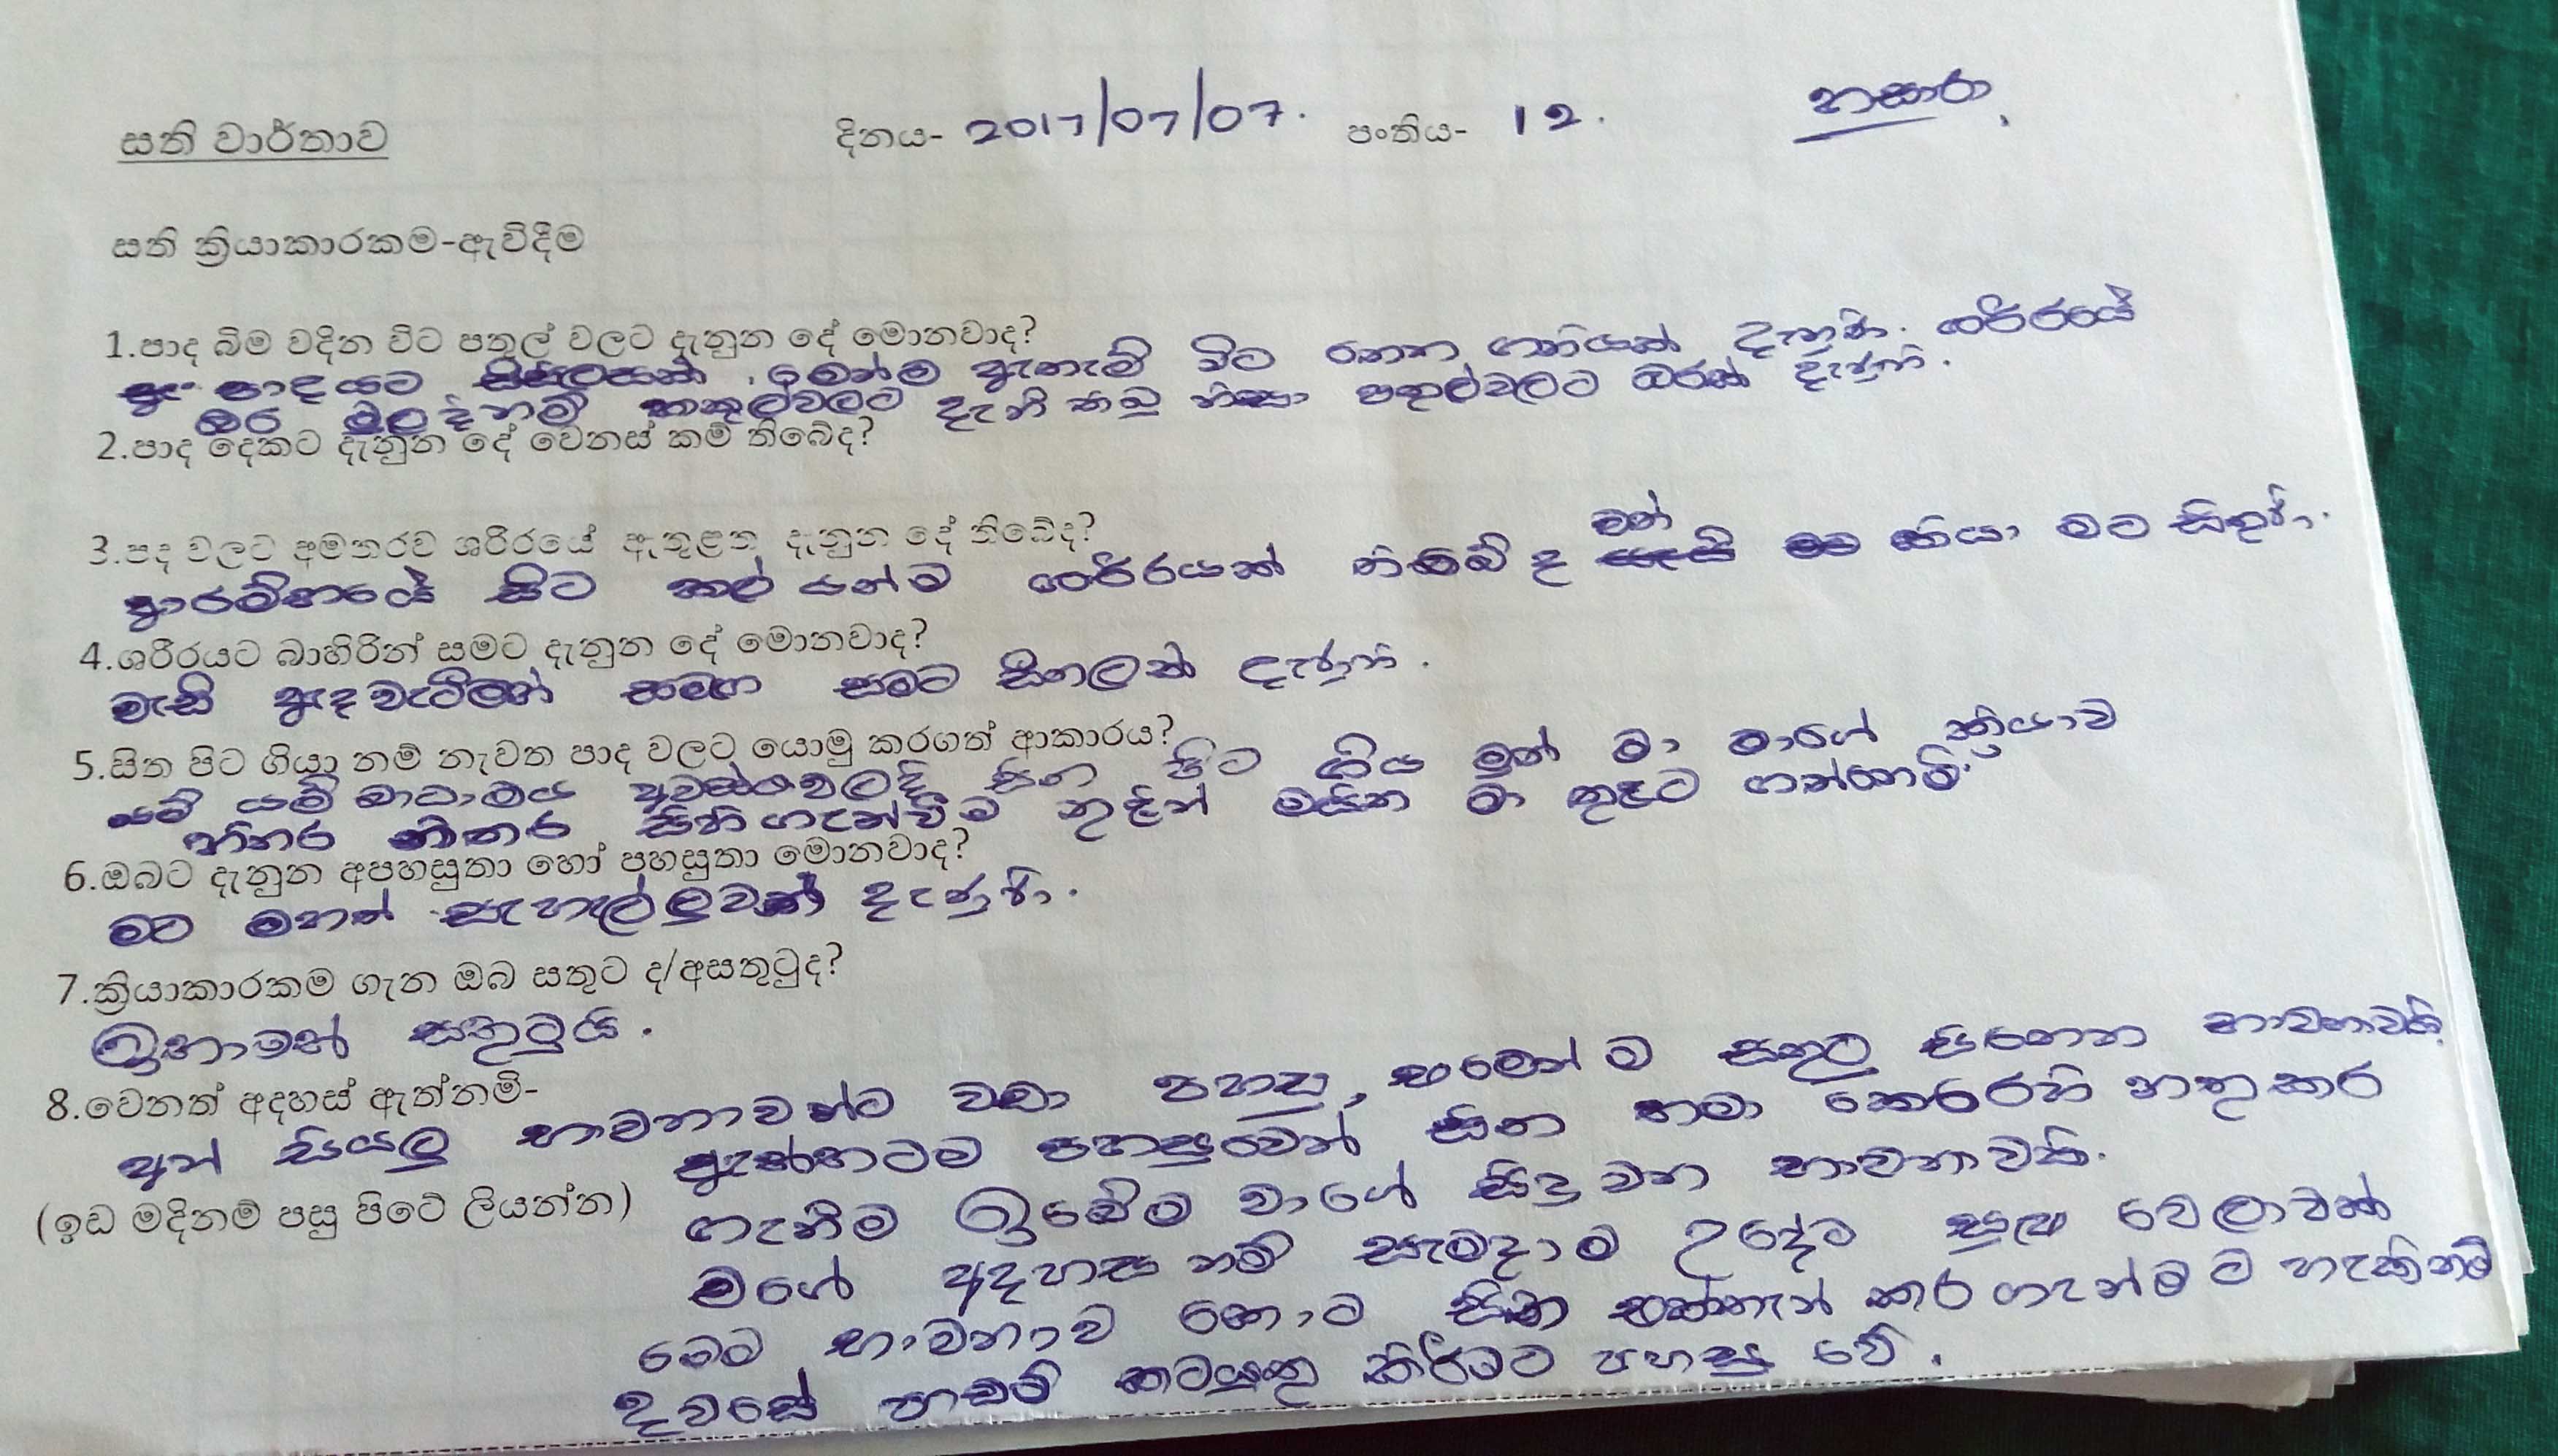 සති වාර්තාව දිනය- 2017/07/07. පංතිය- 12. හසාරා
සති ක්‍රියාකාරකම-ඇවිදීම
1.පාද බිම වදින විට පතුල් වලට දැනුන දේ මොනවාද?
පාදයට සිසිලසක් මෙන්ම ඇතැම් විට රත් ගතියක් දැනුණි. ශරීරයේ
බර මුලදී නම් කකුල්වලට දැනි තිබු නිසා පතුල්වලට බරක් දැනුණි.
2.පාද දෙකට දැනුන දේ වෙනස් කම් තිබේද?
3.පද වලට අමතරව ශරීරයේ ඇතුළත දැනුන දේ තිබේද?
වත්
ආරම්භයේ සිට කල් යත්ම ශරීරයක් තිබේ ද කියා මට සිතුණි.
4.ශරීරයට බාහිරින් සමට දැනුන දේ මොනවාද?
වැසි ඇද වැටීමත් සමග සමට සීතලක් දැනුණි.
5.සිත පිට ගියා නම් නැවත පාද වලට යොමු කරගත් ආකාරය?
යම් යම් බාධාමය අවස්ථාවලදී සිත පිට ගිය මුත් මා මාගේ ක්‍රියාව
නිතර නිතර සිහිගැන්වීම තුළින් මසිත මා තුළට ගත්තෙමි.
6.ඔබට දැනුන අපහසුතා හෝ පහසුතා මොනවාද?
මට මහත් සැහැල්ලුවක් දැනුණි.
7.ක්‍රියාකාරකම ගැන ඔබ සතුට ද/අසතුටුද?
බුහාමත් සතුටුයි.
8.වෙනත් අදහස් ඇත්නම්-
අන් සියලු භාවනාවන්ට වඩා පහසු, එමෙන් ම සතුට සිතෙන භාවනාවකි.
ඇත්තටම පහසුවෙන් සිත තමා කෙරෙහි නතුකර
(ඉඩ මදිනම් පසු පිටේ ලියන්න)
ගැනීම ඉබේම වාගේ සිදු වන භාවනාවකි.
මගේ අදහස නම් සැමදාම උදේට සුළු වෙලාවක්
මෙම භාවනාව කොට සිත එක්තැන් කර ගැන්මට හැකිනම්
දවසේ කටයුතු කිරීමට පහසු වේ.